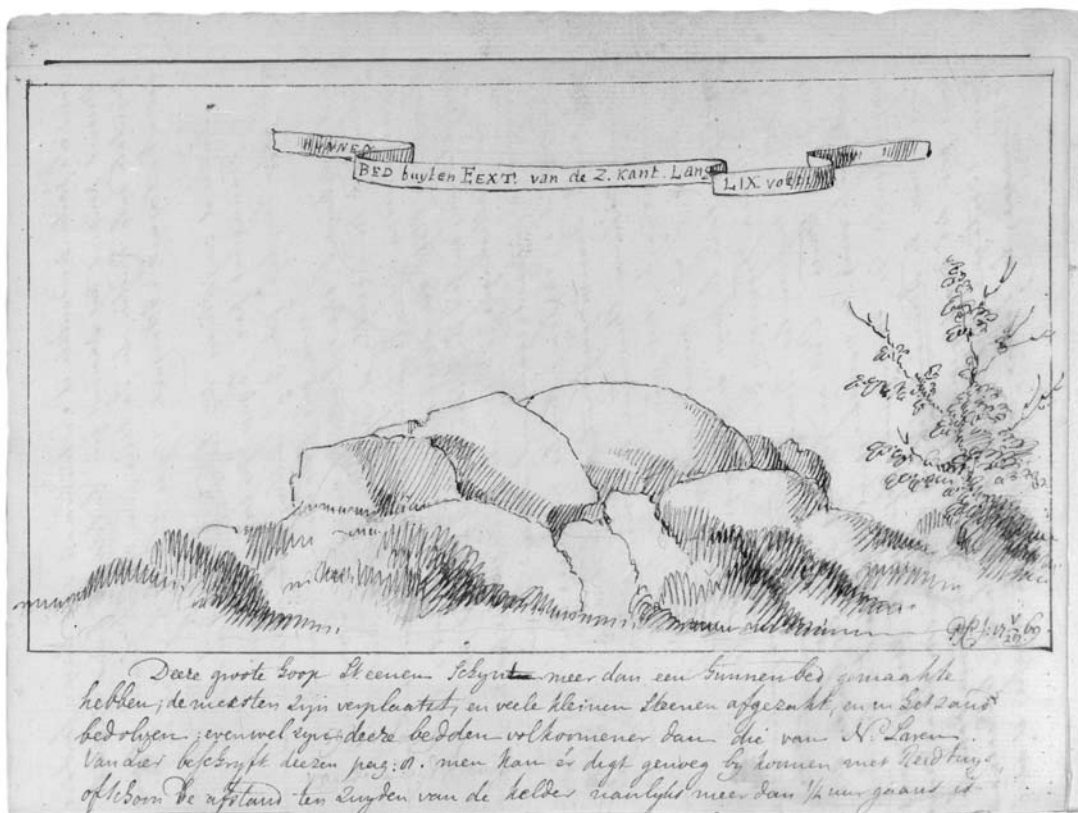 HUNNEN
BED buyten EEXT. van de Z. Kant. Lang
LIX. voet
Deeze groote hoop Steenen Schynt meer dan een hunnenbed gemaakt te
hebben; de meesten zijn verplaatst, en veele kleinen Steenen afgezakt, en in het zand
bedolven; evenwel zyn deeze bedden volkoomener dan die van N. Laren.
Van Lier beschryft deezen pag: men kan er digt genoeg by komen met Reidtuyg
ofschoon de afstand ten Zuyden van de kelder naulyks meer dan 1/4 uur gaans is